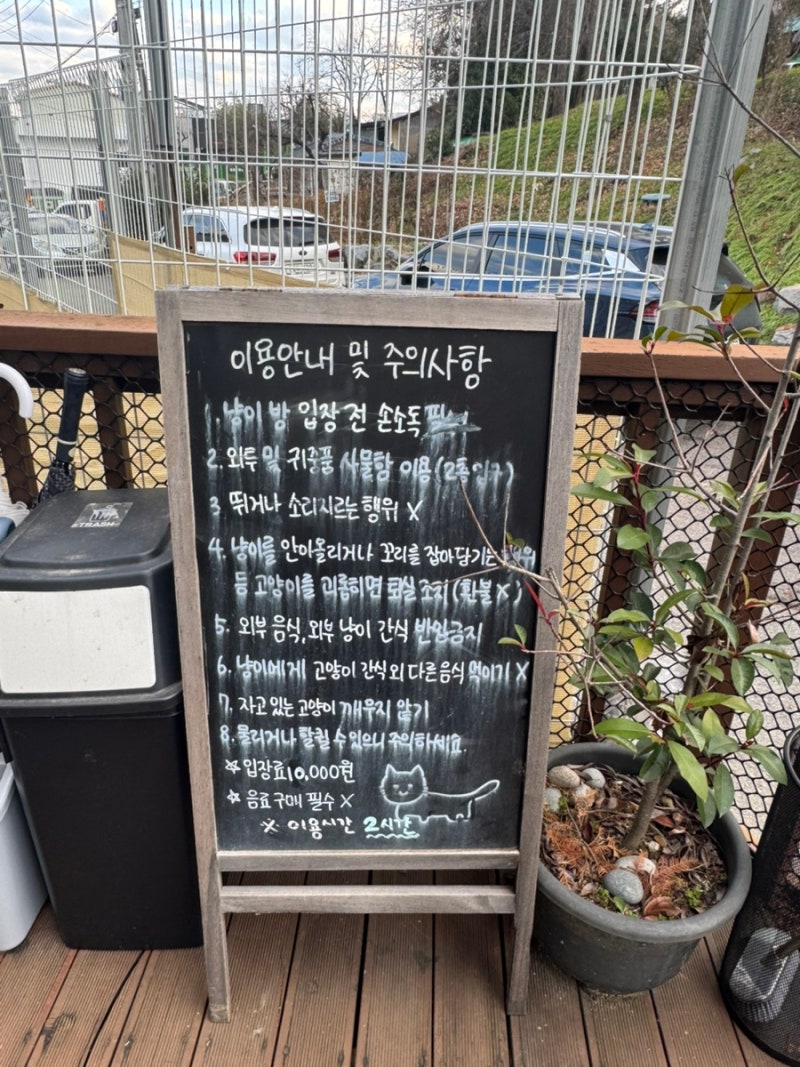 이용안내 및 주의사항
1. 냥이 방 입장 전 손소독
2. 외투 및 귀중품 사물함 이용 (2층 입구)
3 뛰거나 소리지르는 행위 X
4. 냥이를 안아올리거나 꼬리를 잡아당기는 행위
등 고양이를 괴롭히면 퇴실 조치 (환불 X)
5. 외부 음식, 외부 냥이 간식 반입금지
6. 냥이에게 고양이 간식 외 다른 음식 먹이기 X
7. 자고 있는 고양이 깨우지 않기
8. 물리거나 할퀼 수 있으니 주의하세요.
☆ 입장료 10,000원
☆ 음료 구매 필수 X
※ 이용시간 2시간